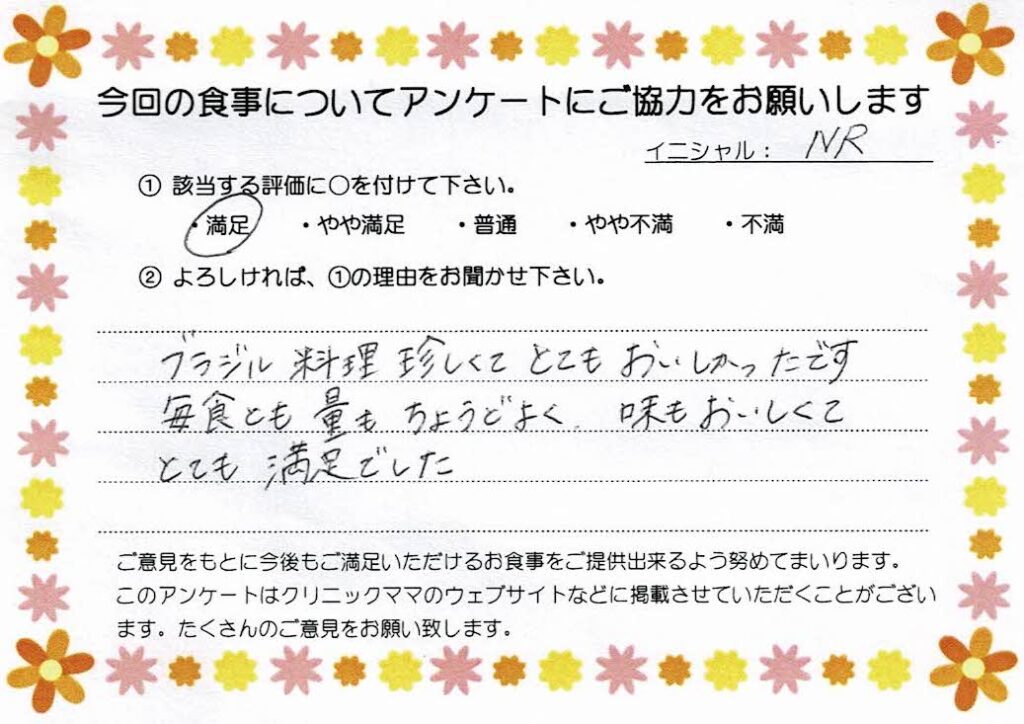 今回の食事についてアンケートにご協力をお願いします
イニシャル： NR
① 該当する評価に○を付けて下さい。
・満足 ・やや満足 ・普通 ・やや不満 ・不満
② よろしければ、①の理由をお聞かせ下さい。
ブラジル料理 珍しくて とても おいしかったです
毎食とも 量も ちょうどよく、味もおいしくて
とても 満足でした
ご意見をもとに今後もご満足いただけるお食事をご提供出来るよう努めてまいります。
このアンケートはクリニックママのウェブサイトなどに掲載させていただくことがござい
ます。たくさんのご意見をお願い致します。